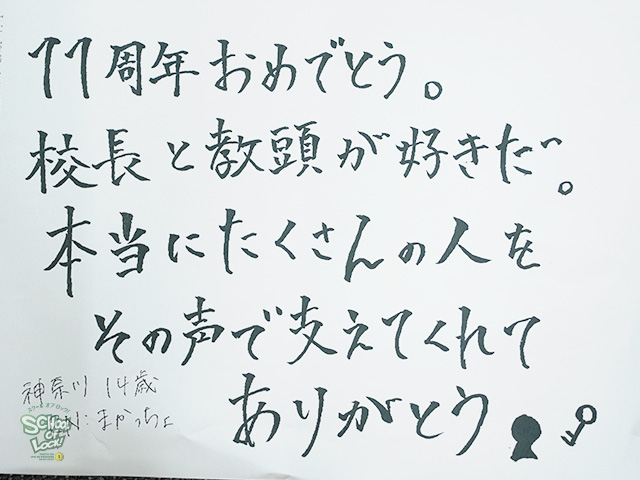 11周年おめでとう。
校長と教頭が好きだ。
本当にたくさんの人を
その声で支えてくれて
ありがとう
神奈川 14歳
RN:まかっちょ
スクールオブロック!
SCHOOL
OF
LOCK!